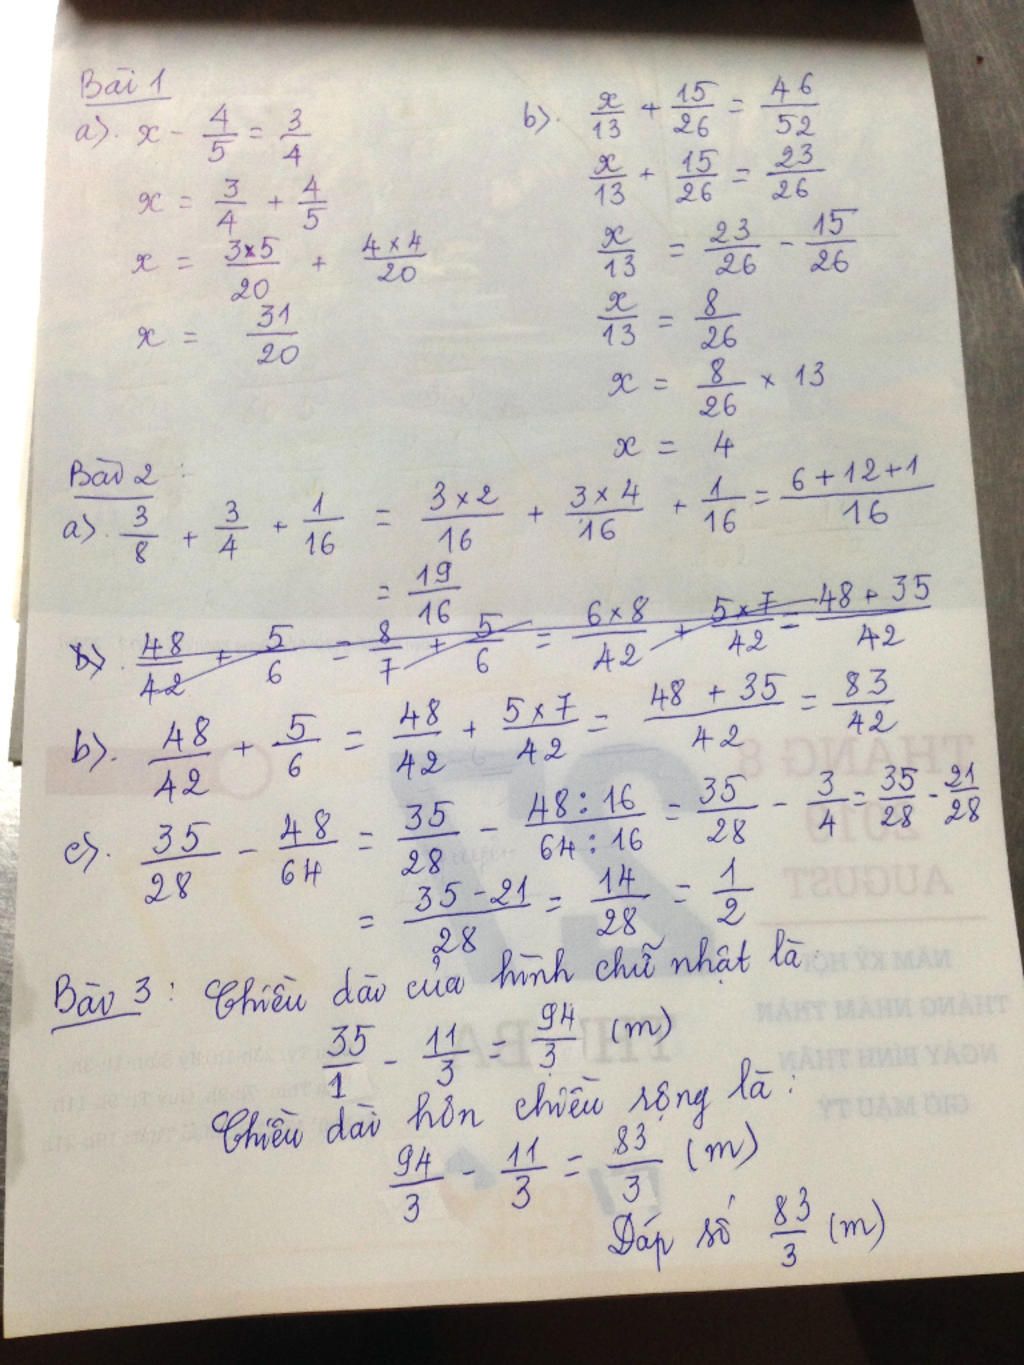 Bài 1
a). x - 4/5 = 3/4
x = 3/4 + 4/5
x = 3×5/20 + 4×4/20
x = 31/20
b). x/13 + 15/26 = 46/52
x/13 + 15/26 = 23/26
x/13 = 23/26 - 15/26
x/13 = 8/26
x = 8/26 × 13
x = 4
Bài 2 :
a). 3/8 + 3/4 + 1/16 = 3×2/16 + 3×4/16 + 1/16 = 6+12+1/16
= 19/16
b). 48/42 + 5/6 = 8/7 + 5/6 = 6×8/42 + 5×7/42 = 48+35/42
b). 48/42 + 5/6 = 48/42 + 5×7/42 = 48+35/42 = 83/42
c). 35/28 - 48/64 = 35/28 - 48:16/64:16 = 35/28 - 3/4 = 35/28 - 21/28
= 35-21/28 = 14/28 = 1/2
Bài 3 : Chiều dài của hình chữ nhật là
35/1 - 11/3 = 94/3 (m)
Chiều dài hơn chiều rộng là :
94/3 - 11/3 = 83/3 (m)
Đáp số 83/3 (m)
THÁNG 8
2019
AUGUST
THỨ BA